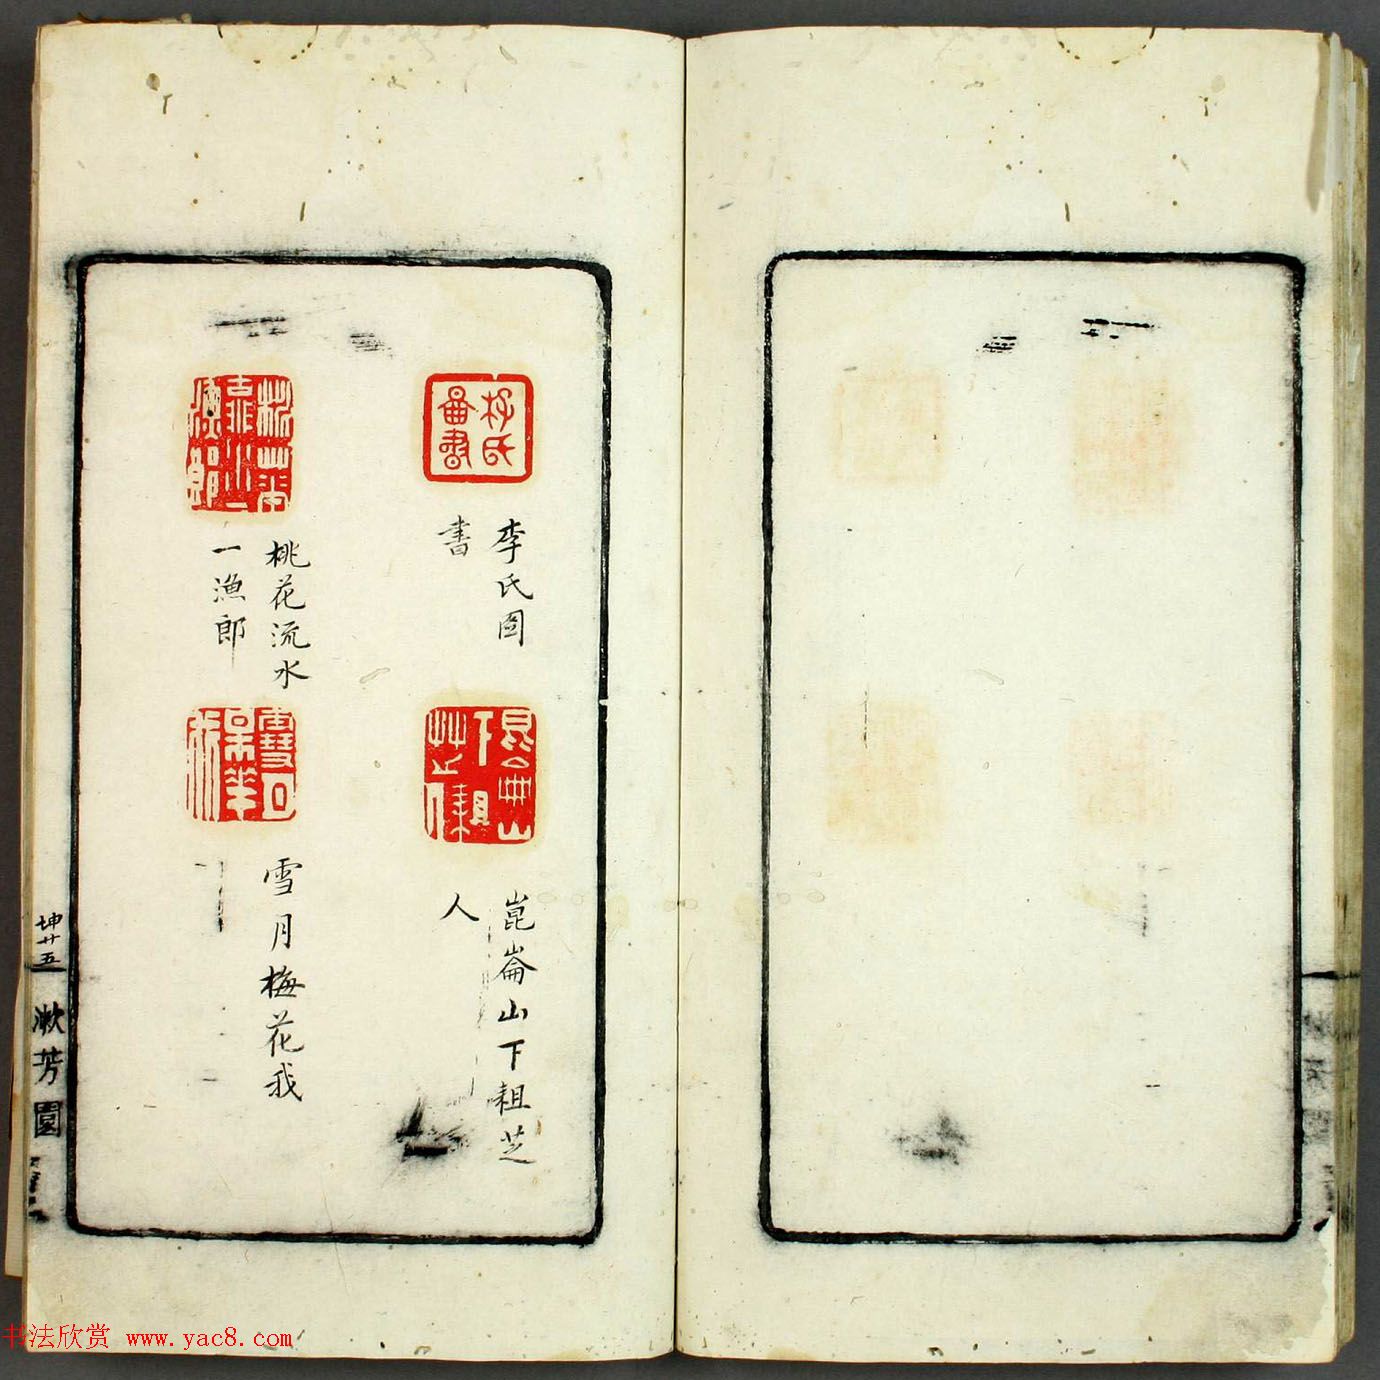 李氏圖
書
崑崙山下耝芝
人
桃花流水
一漁郎
雪月梅花我
坤廿五
漱芳園
书法欣赏 www.yac8.com